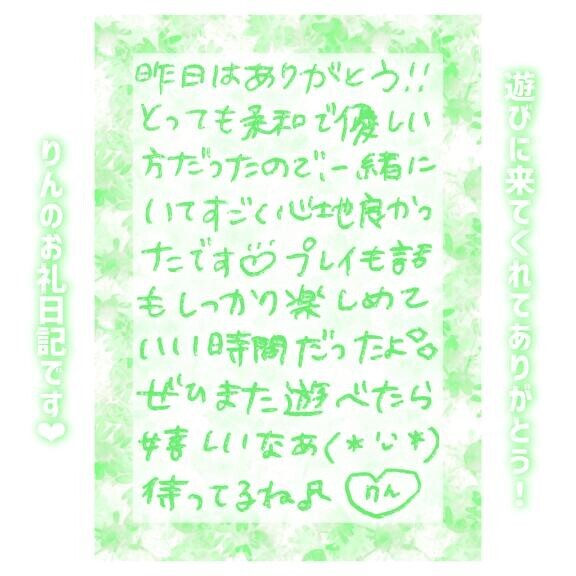 遊びに来てくれてありがとう！
昨日はありがとう!!
とっても柔和で優しい
方だったので、一緒に
いてすごく心地良かっ
たです♡プレイも話
もしっかり楽しめて
いい時間だったよ
ぜひまた遊べたら
嬉しいなぁ(*'ᴗ'*)
待ってるね♬ りん
りんのお礼日記です❤